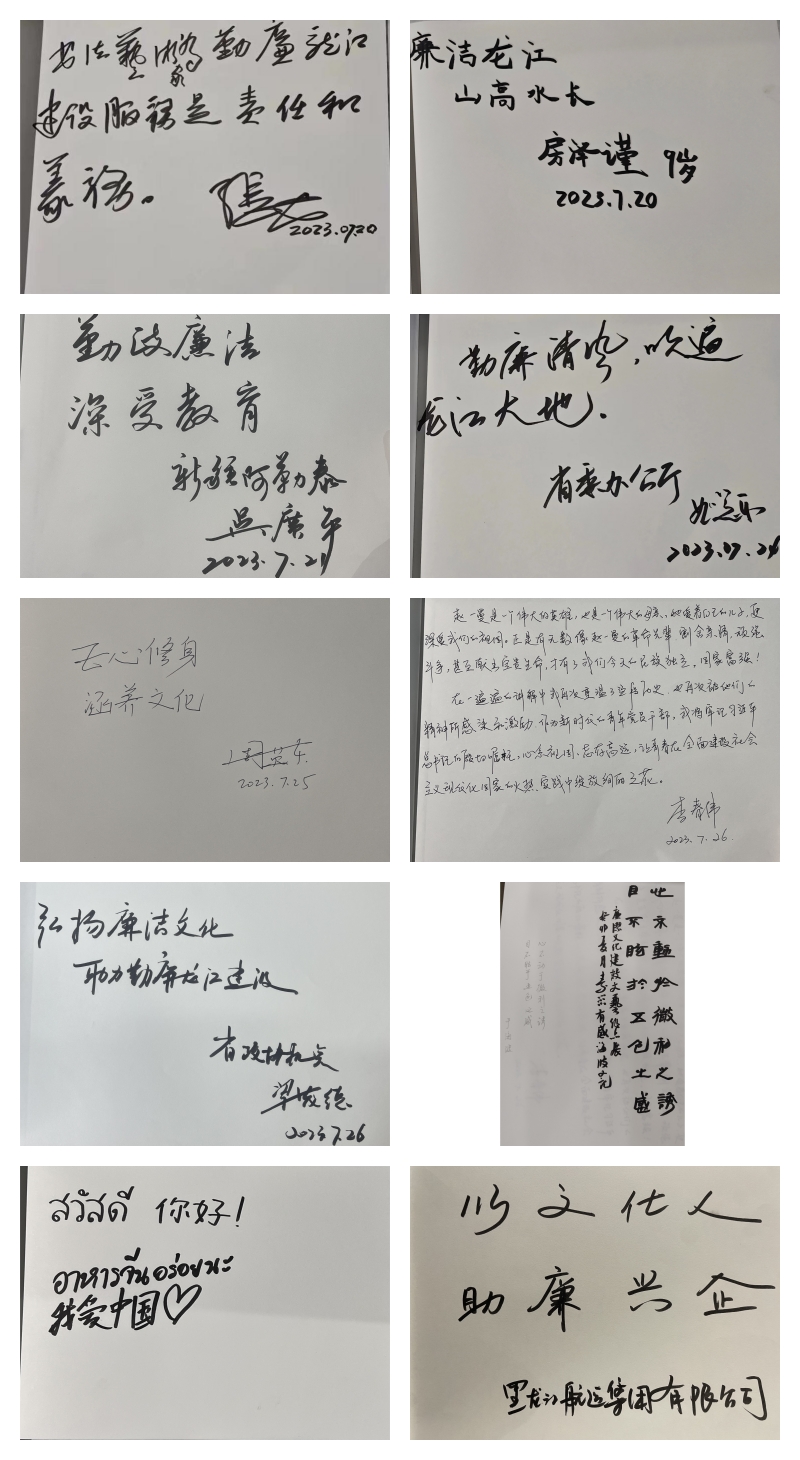 书法藝術为勤廉龙江
家
建设服務是责任和
義務。
2023.07.20
廉洁龙江
山高水长
房泽谨 9岁
2023.7.20
勤政廉洁
深受教育
新疆阿勒泰
吴廣平
2023.7.21
勤廉清风,吹遍
龙江大地.
省委办公厅
正心修身
涵养文化
周英东
2023.7.25
赵一曼是一个伟大的英雄,也是一个伟大的母亲,她爱着自己的儿子,更
深爱我们的祖国。正是有无数像赵一曼的革命先辈割舍亲情、顽强
斗争,甚至献出宝贵生命,才有了我们今天的民族独立,国家富强!
在一遍遍的讲解中我再次重温了这段历史,也再次被他们的
精神所感染和激励,作为新时代的青年党员干部,我将牢记习近平
总书记的殷切嘱托,心系祖国、志存高远,让青春在全面建设社会
主义现代化国家的火热实践中绽放绚丽之花。
李春伟
2023.7.26.
弘扬廉洁文化
助力勤廉龙江建设
省政协机关
2023.7.26
心不動於微利之誘
目不眩於五色之惑
廉潔文化建設文藝作品展
สวัสดี 你好!
อาหารจีนอร่อยนะ
我爱中国♡
以文化人
助廉兴企
黑龙江航运集团有限公司